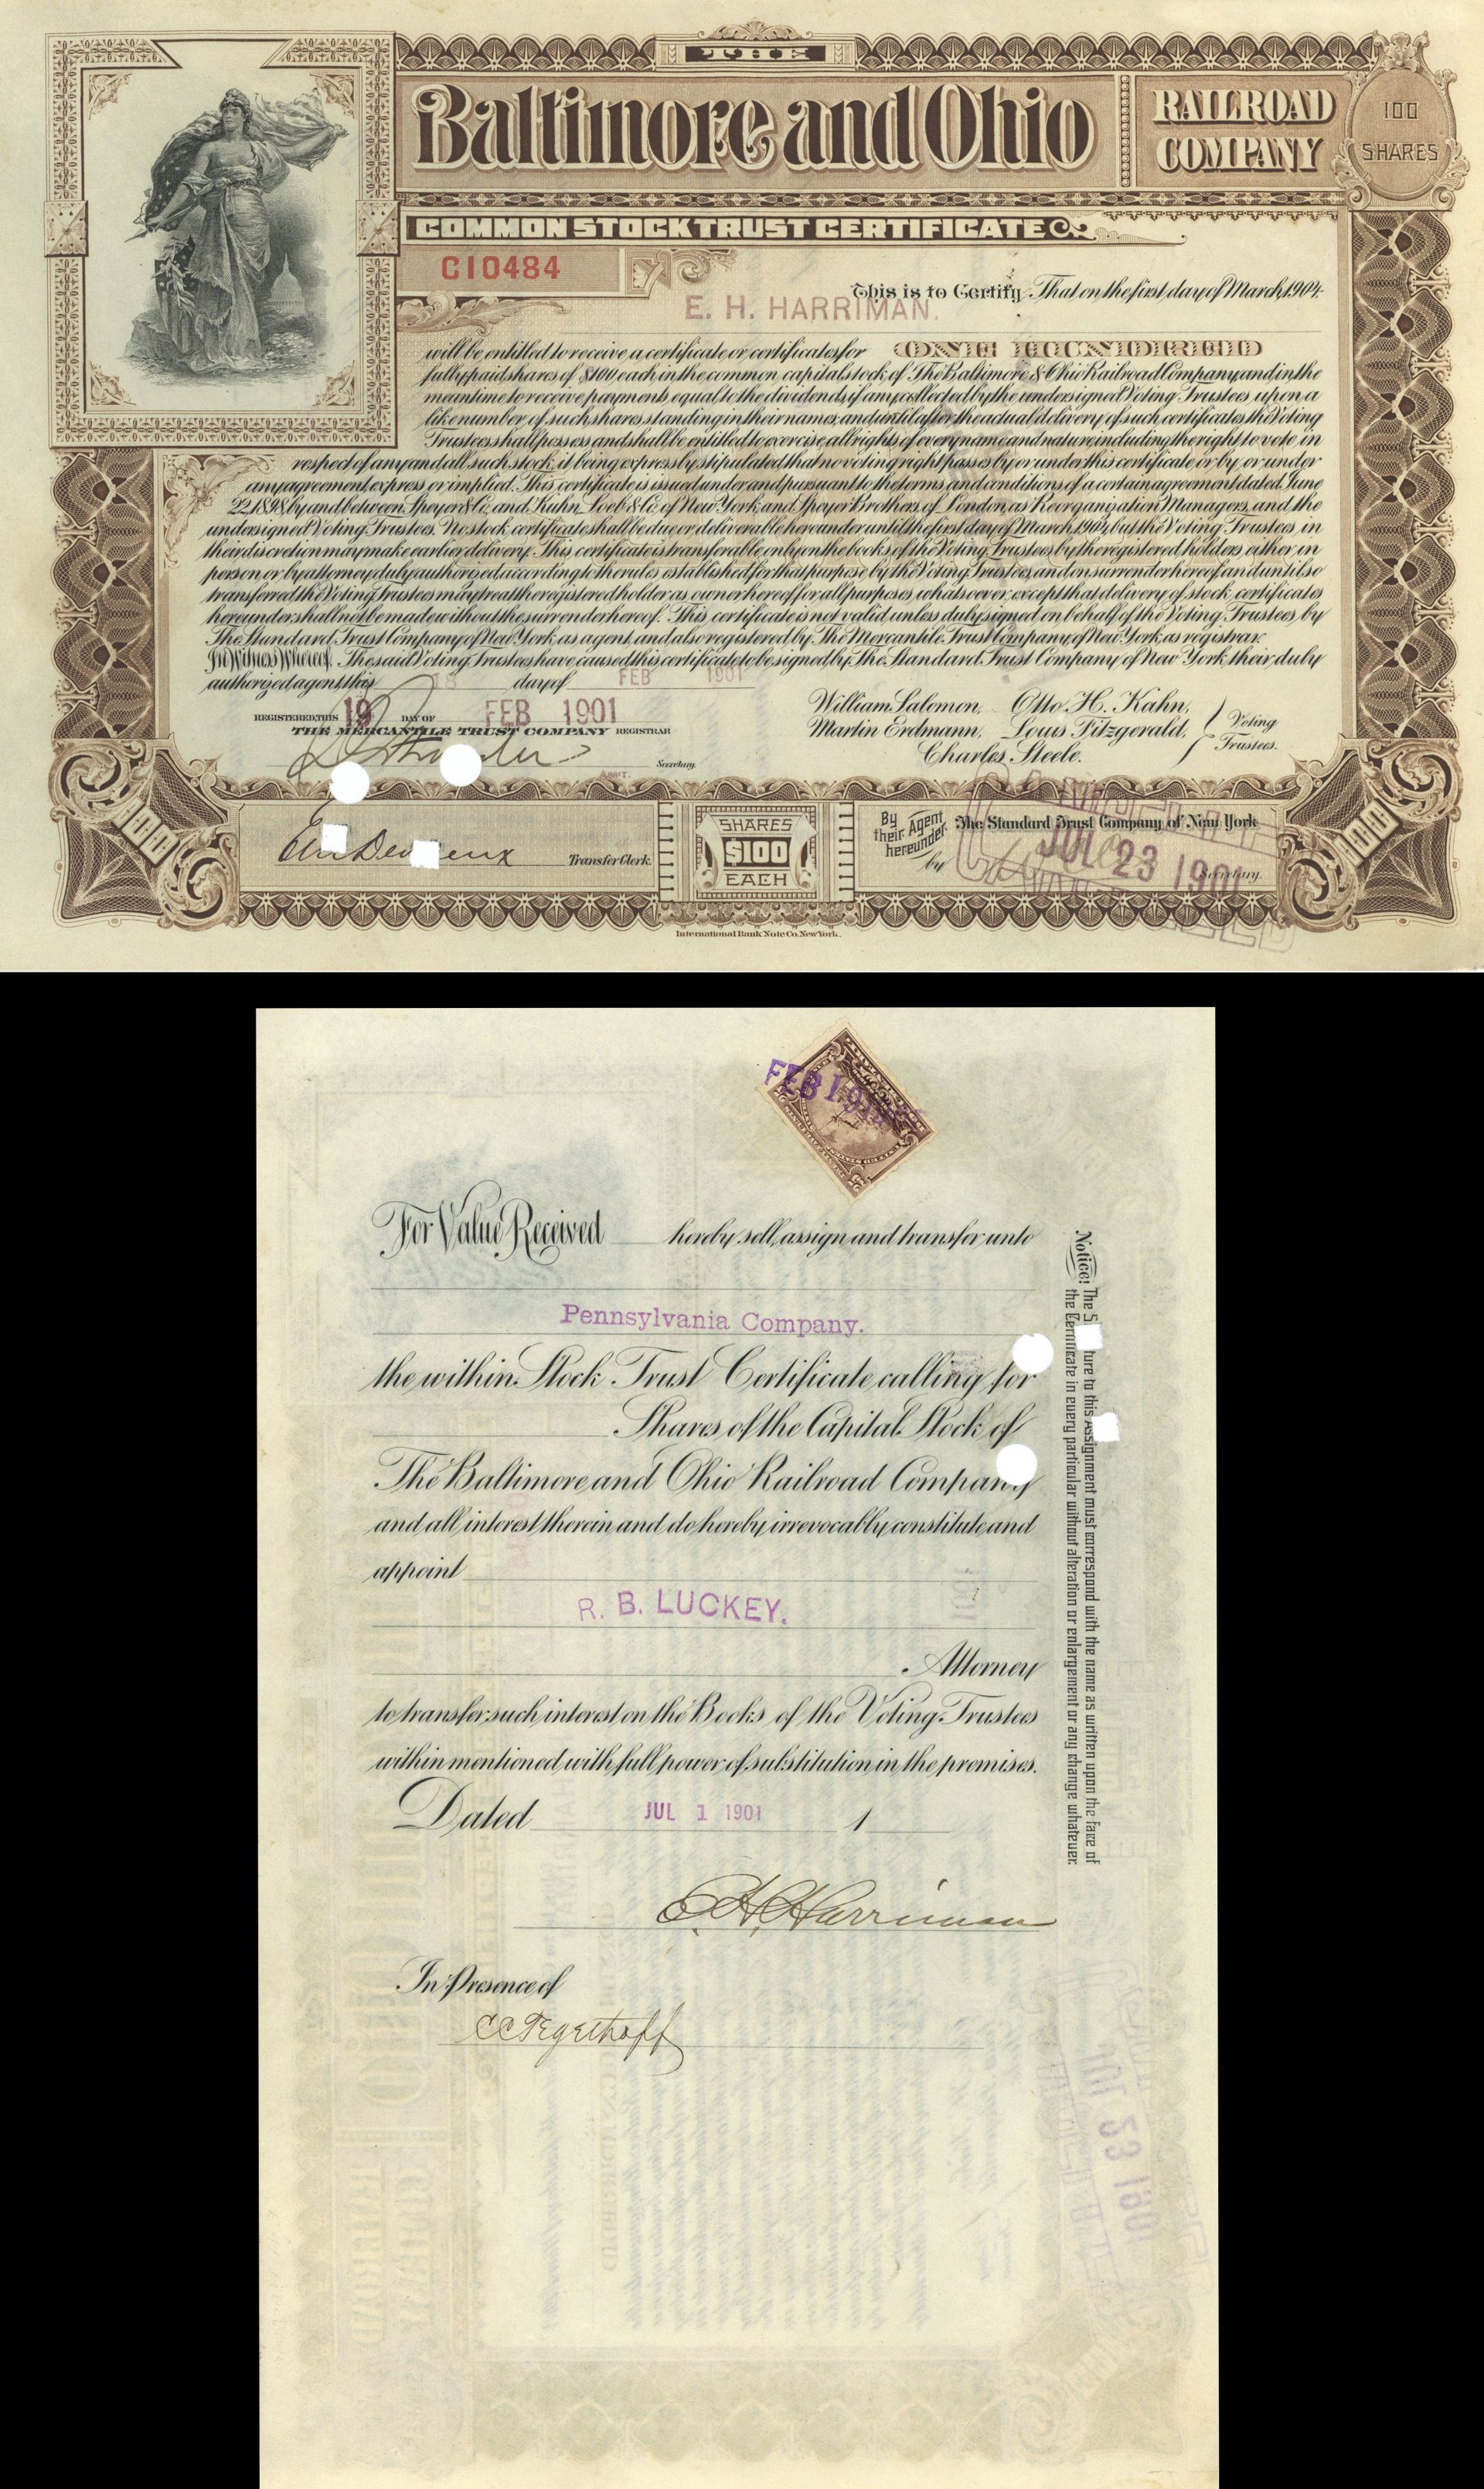 THE
Baltimore and Ohio
RAILROAD
COMPANY
100
SHARES
COMMON STOCK TRUST CERTIFICATE
C10484
This is to Certify, That on the first day of March, 1904,
E. H. HARRIMAN.
will be entitled to receive a certificate or certificates for ONE HUNDRED
fully paid shares of $100 each in the common capital stock of The Baltimore & Ohio Railroad Company and in the
meantime to receive payments equal to the dividends, if any, collected by the undersigned Voting Trustees upon a
like number of such shares standing in their names, and until after the actual delivery of such certificates the Voting
Trustees shall possess and shall be entitled to exercise all rights of every name and nature including the right to vote in
respect of any and all such stock, it being expressly stipulated that no voting right passes by or under this certificate or by or under
any agreement express or implied. This certificate is issued under and pursuant to the terms and conditions of a certain agreement dated June
22, 1898, by and between Speyer & Co. and Kuhn, Loeb & Co. of New York and Speyer Brothers, of London, as Reorganization Managers, and the
undersigned Voting Trustees. No stock certificate shall be due or deliverable hereunder until the first day of March, 1904, but the Voting Trustees in
their discretion may make earlier delivery. This certificate is transferable only on the books of the Voting Trustees by the registered holders either in
person or by attorney duly authorized, according to the rules established for that purpose by the Voting Trustees, and on surrender hereof, and until so
transferred the Voting Trustees may treat the registered holder as owner hereof for all purposes whatsoever, except that delivery of stock certificates
hereunder shall not be made without the surrender hereof. This certificate is not valid unless duly signed on behalf of the Voting Trustees by
The Standard Trust Company of New York as agent and also registered by The Mercantile Trust Company of New York as registrar.
In Witness Whereof, The said Voting Trustees have caused this certificate to be signed by The Standard Trust Company of New York their duly
authorized agent, this 18 day of FEB 1901
REGISTERED THIS 19 DAY OF FEB 1901
THE MERCANTILE TRUST COMPANY REGISTRAR
Secretary.
ASST.
William Salomon, Otto H. Kahn,
Martin Erdmann, Louis Fitzgerald,
Charles Steele.
Voting
Trustees.
Transfer Clerk.
SHARES
$100
EACH
By
their Agent
hereunder.
by
The Standard Trust Company of New York
Secretary.
CANCELLED
JUL 23 1901
CANCELLED
100
100
International Bank Note Co. New York.
FEB
For Value Received hereby sell, assign and transfer unto
Pennsylvania Company.
the within Stock Trust Certificate calling for
Shares of the Capital Stock of
The Baltimore and Ohio Railroad Company
and all interest therein and do hereby irrevocably constitute and
appoint
R. B. LUCKEY.
Attorney
to transfer such interest on the Books of the Voting Trustees
within mentioned with full power of substitution in the premises.
Dated JUL 1 1901 1
E. H. Harriman
In Presence of
C C Tegethoff
Notice! The S ture to this Assignment must correspond with the name as written upon the face of
the Certificate in every particular without alteration or enlargement or any change whatever.